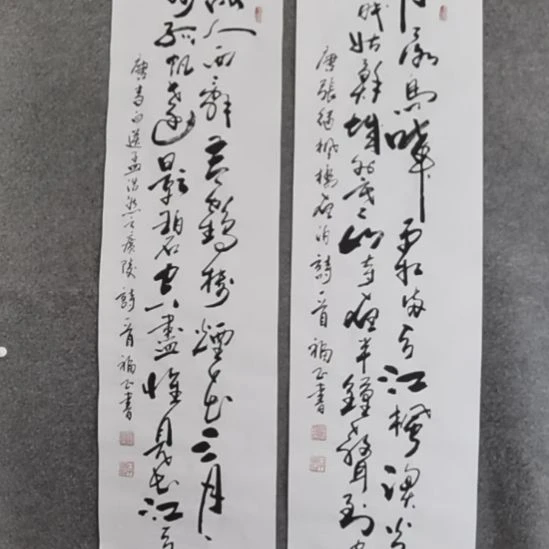 月落烏啼霜滿天江楓漁火
眠姑蘇城外寒山寺夜半鐘聲到客
唐張繼楓橋夜泊詩一首 福正書
故人西辭黃鶴樓煙花三月
州孤帆遠影碧空盡惟見長江天
唐李白送孟浩然之廣陵詩一首 福正書